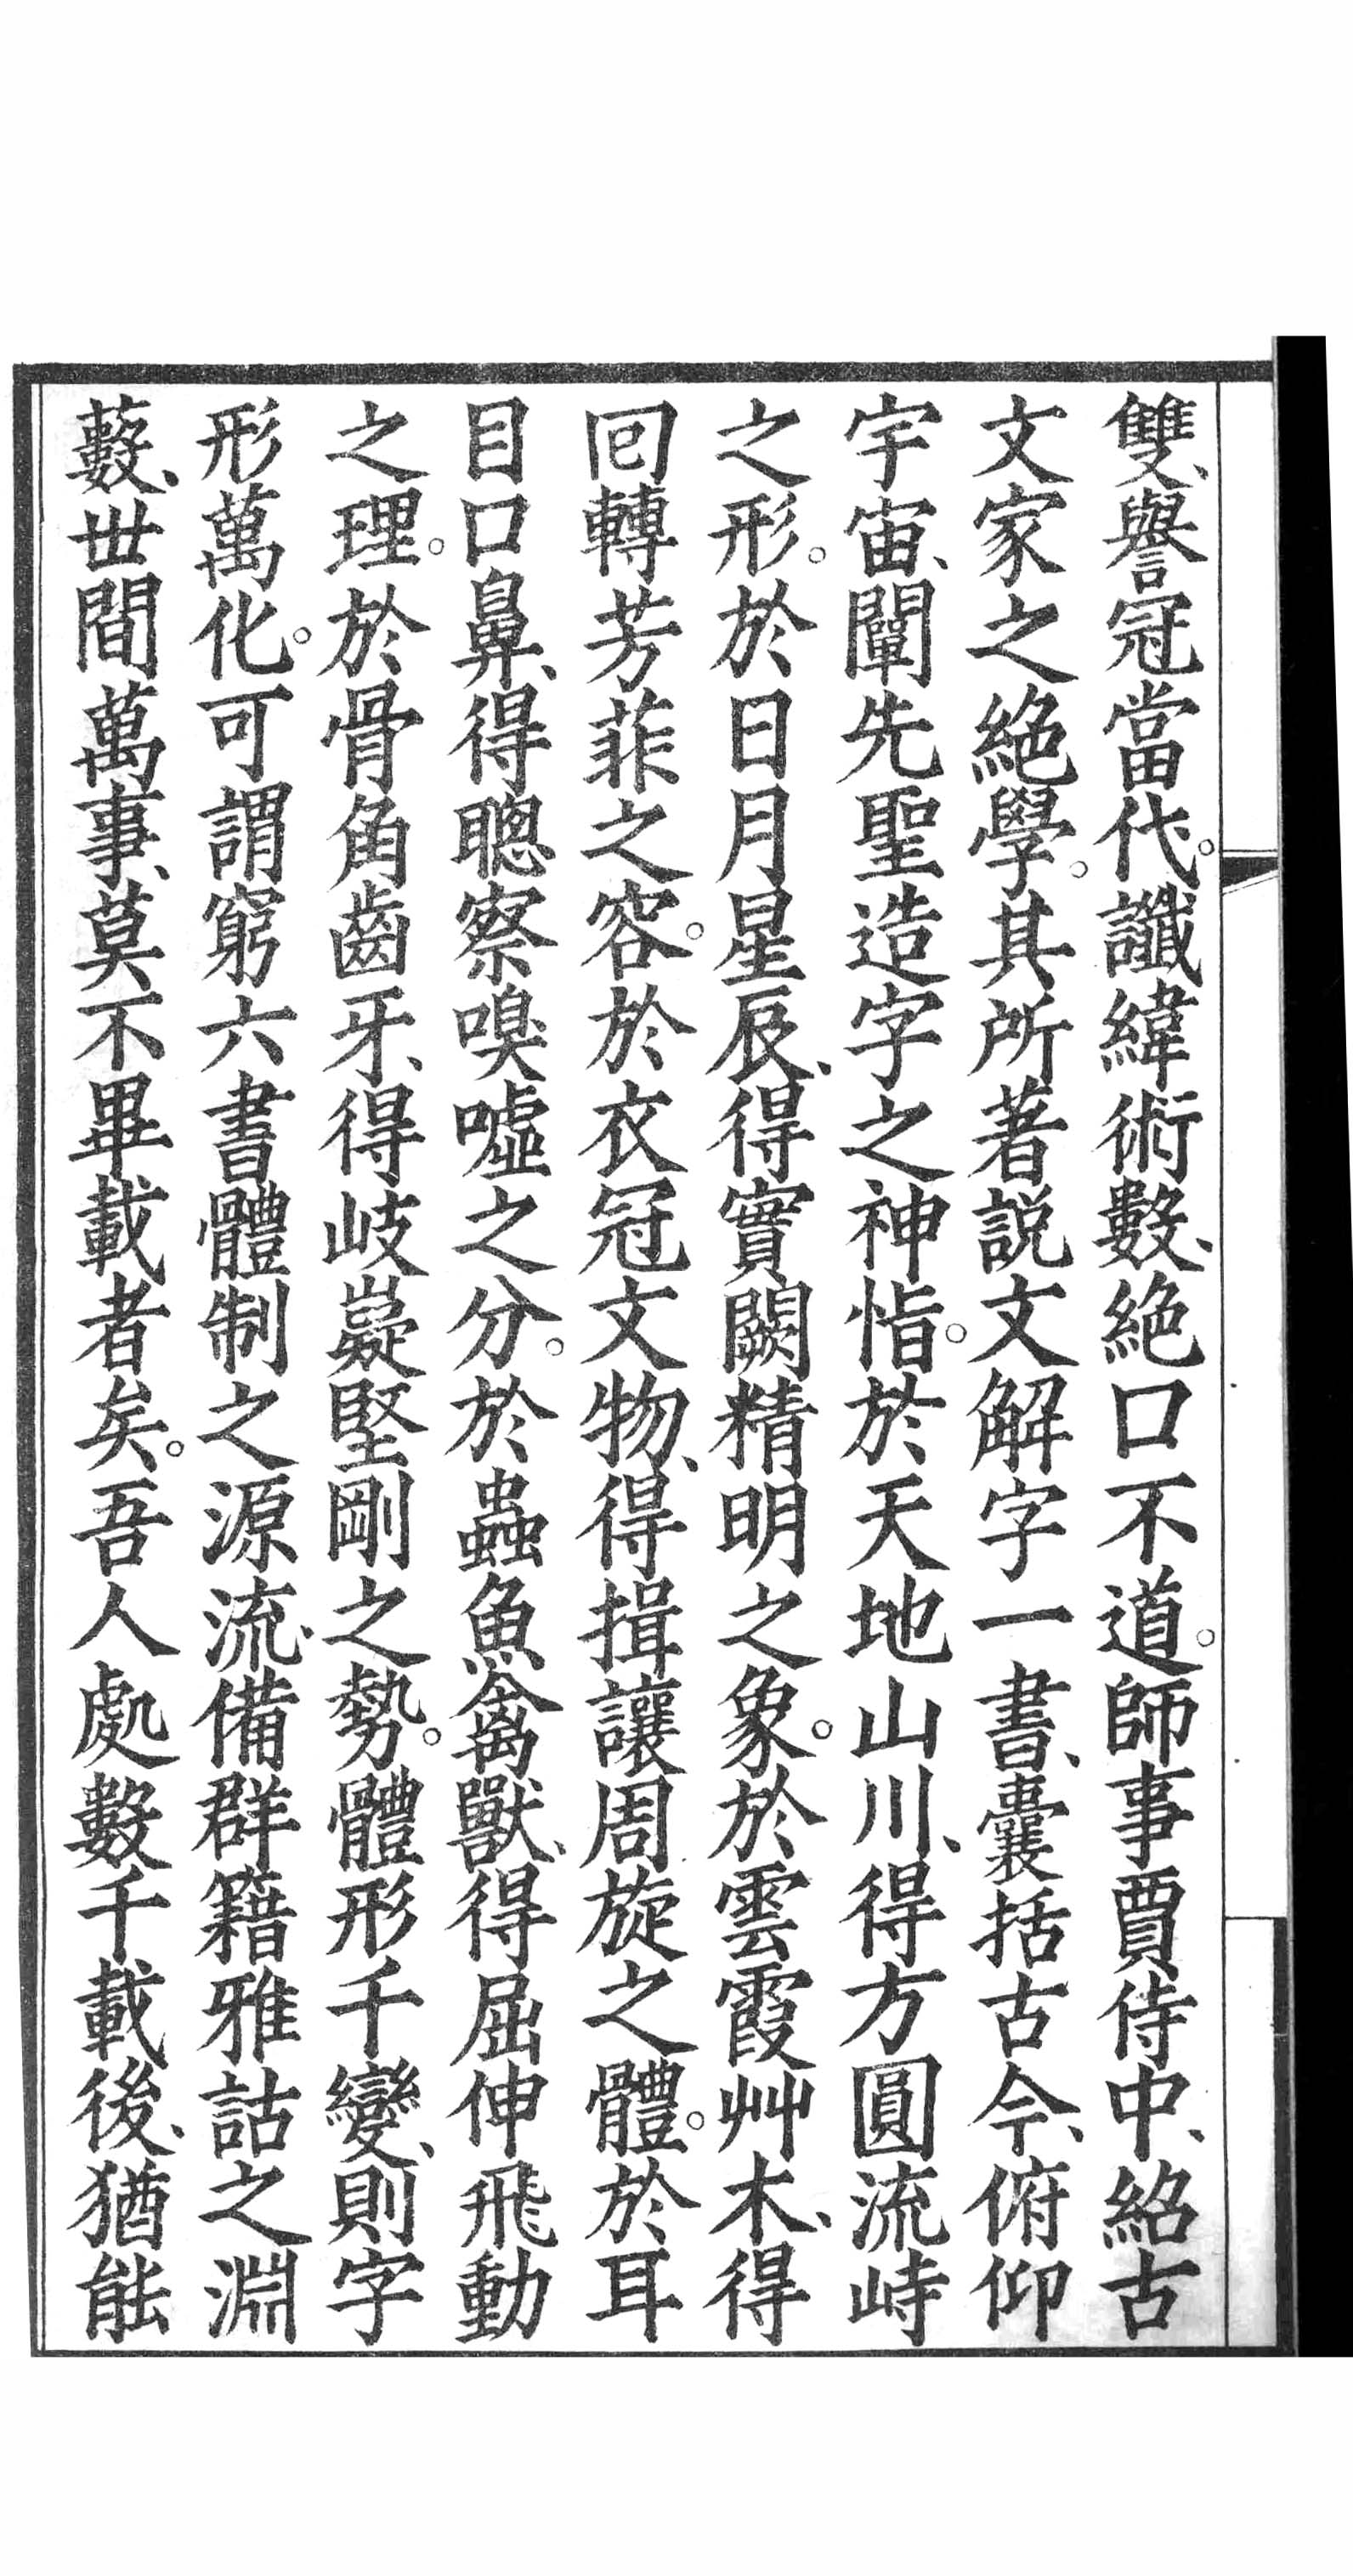 雙、譽冠當代。讖緯術數、絕口不道。師事賈侍中、紹古
文家之絕學。其所著說文解字一書、囊括古今、俯仰
宇宙、闡先聖造字之神恉。於天地山川、得方圓流峙
之形。於日月星辰、得實闕精明之象。於雲霞艸木、得
回轉芳菲之容。於衣冠文物、得揖讓周旋之體。於耳
目口鼻、得聰察嗅噓之分。於蟲魚禽獸、得屈伸飛動
之理。於骨角齒牙、得岐嶷堅剛之勢。體形千變、則字
形萬化。可謂窮六書體制之源流、備群籍雅詁之淵
藪、世間萬事、莫不畢載者矣。吾人處數千載後、猶能